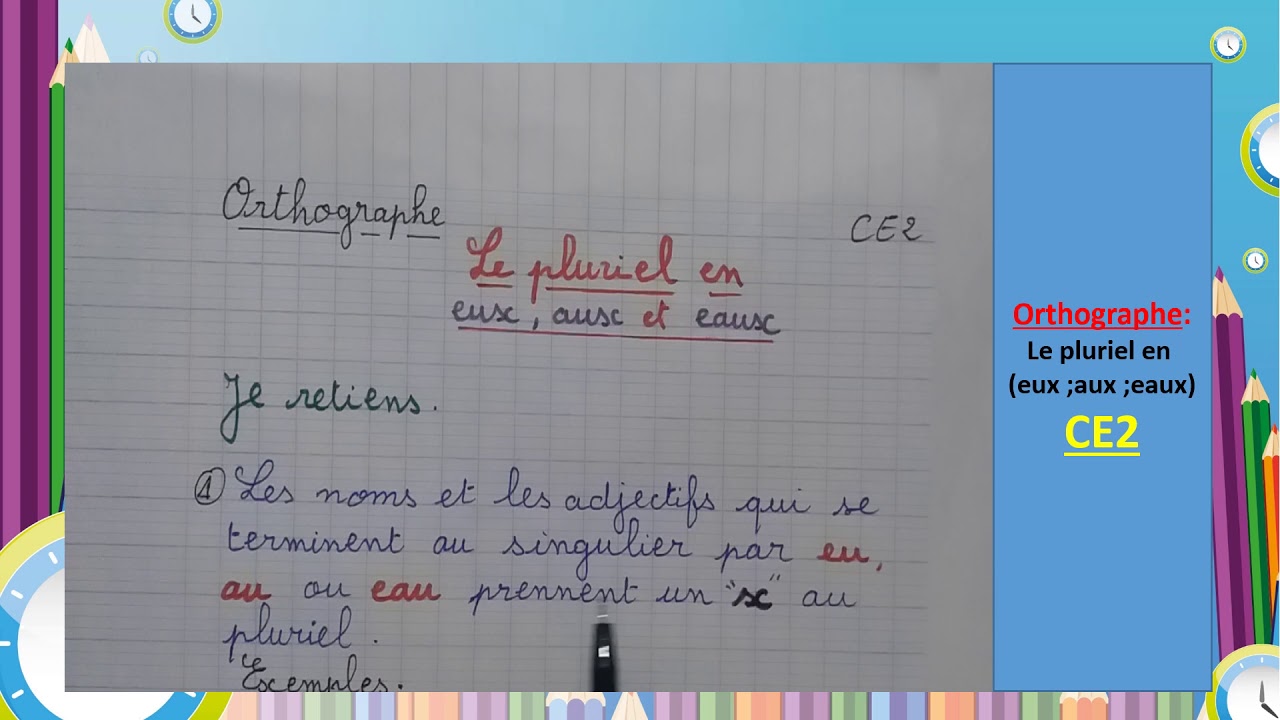 Orthographe
CE2
Le pluriel en
eux, aux et eaux
Je retiens.
① Les noms et les adjectifs qui se
terminent au singulier par eu,
au ou eau prennent un "x" au
pluriel.
Exemples.
Orthographe:
Le pluriel en
(eux ;aux ;eaux)
CE2